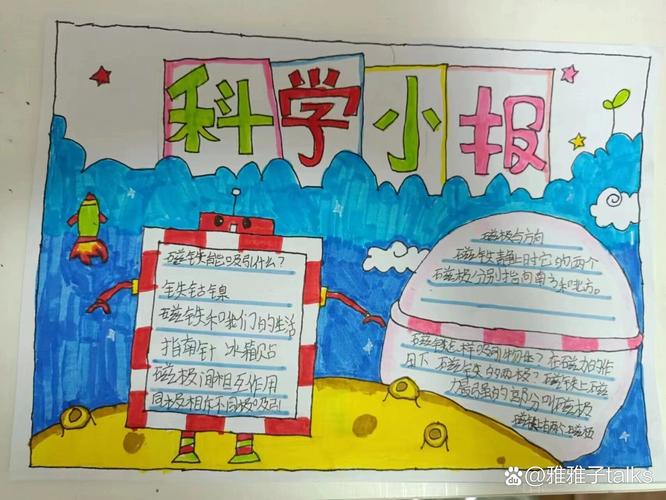 科学小报
磁铁能吸引什么？
铁钴镍
磁铁和我们的生活
指南针 冰箱贴
磁极间相互作用
同极相斥不同极吸引
磁极与方向
磁铁静止时它的两个
磁极分别指向南方和北方。
磁铁怎样吸引物体？在磁力的作
用下 磁铁的两极？磁铁上磁
力最强的部分叫磁极
磁铁上有两个磁极
@雅雅子talks